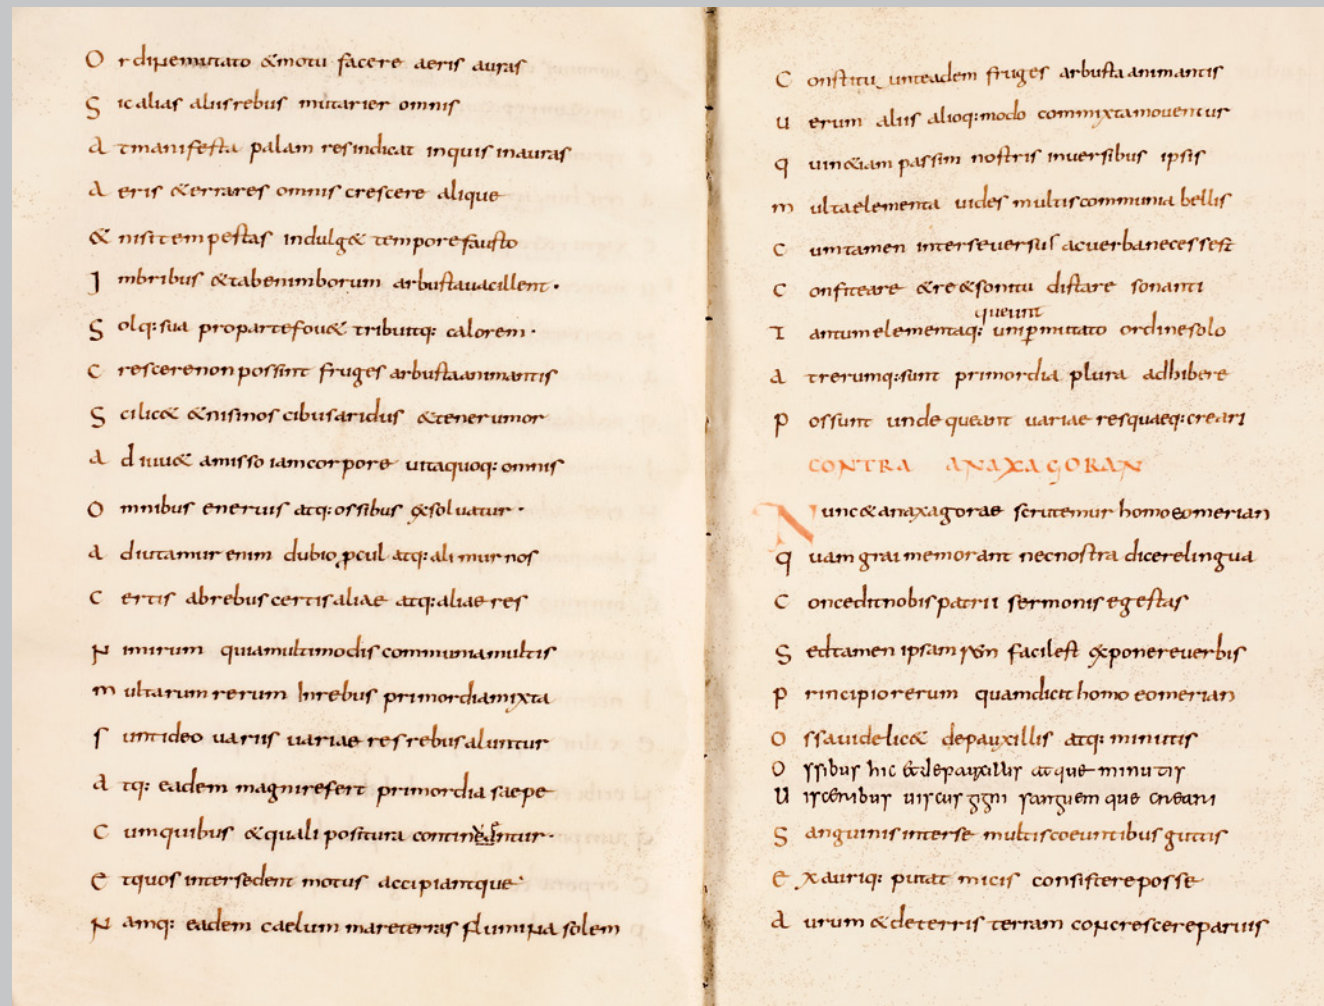 O rdinemutato &motu facere aeris auras
S ic alias aliisrebus mutarier omnis
A tmanifesta palam resindicat inquis inauras
A eris &errares omnis crescere alique
& nisitempestas indulg& temporefausto
I mbribus &tabenimborum arbustauacillent·
S olq: sua propartefou& tribuitq: calorem·
C rescerenonpossint fruges arbustaanimantis
S cilic& &nisinos cibusaridus &tenerumor
A diuu& amisso iamcorpore uitaquoq: omnis
O mnibus eneruis atq:ossibus exsoluatur·
A diutamur enim dubio pcul atq:alimurnos
C ertis abrebuscertisaliae atq:aliaeres
N imirum quiamultimodiscommuniamultis
M ultarumrerum inrebus primordiamixta
S untideo uariis uariae resrebusaluntur
A tq: eadem magnirefert primordia saepe
C umquibus &quali positura contineantur·
E tquosintersedent motus accipiantque
N amq: eadem caelum mareterras flumina solem
C onstitu unteadem fruges arbustaanimantis
U erum aliis alioq:modo commixtamouentur
Q uin&iampassim nostris inuersibus ipsis
M ultaelementa uides multiscommunia bellis
C umtamen interseuersus acuerbanecessest
C onfiteare &re&sonitu distare sonanti
queunt
T antumelementaq: unipmutato ordinesolo
A trerumq:sunt primordia plura adhibere
P ossunt undequeant uariae resquaeq:creari
CONTRA ANAXAGORAN
N unc&anaxagorae scrutemur homoeomerian
Q uamgraimemorant necnostra dicerelingua
C onceditnobispatrii sermonisegestas
S edtamenipsam rem facilest exponereuerbis
P rincipiorerum quamdicit homoeomerian
O ssauidelic& depauxillis atq: minutis
O ssibus hic &depauxillis atque minutis
U isceribus uiscus gigni sanguemque creari
S anguinisinterse multiscoeuntibusguttis
E xauriq: putat micis consistereposse
A urum &deterris terram concrescereparuis